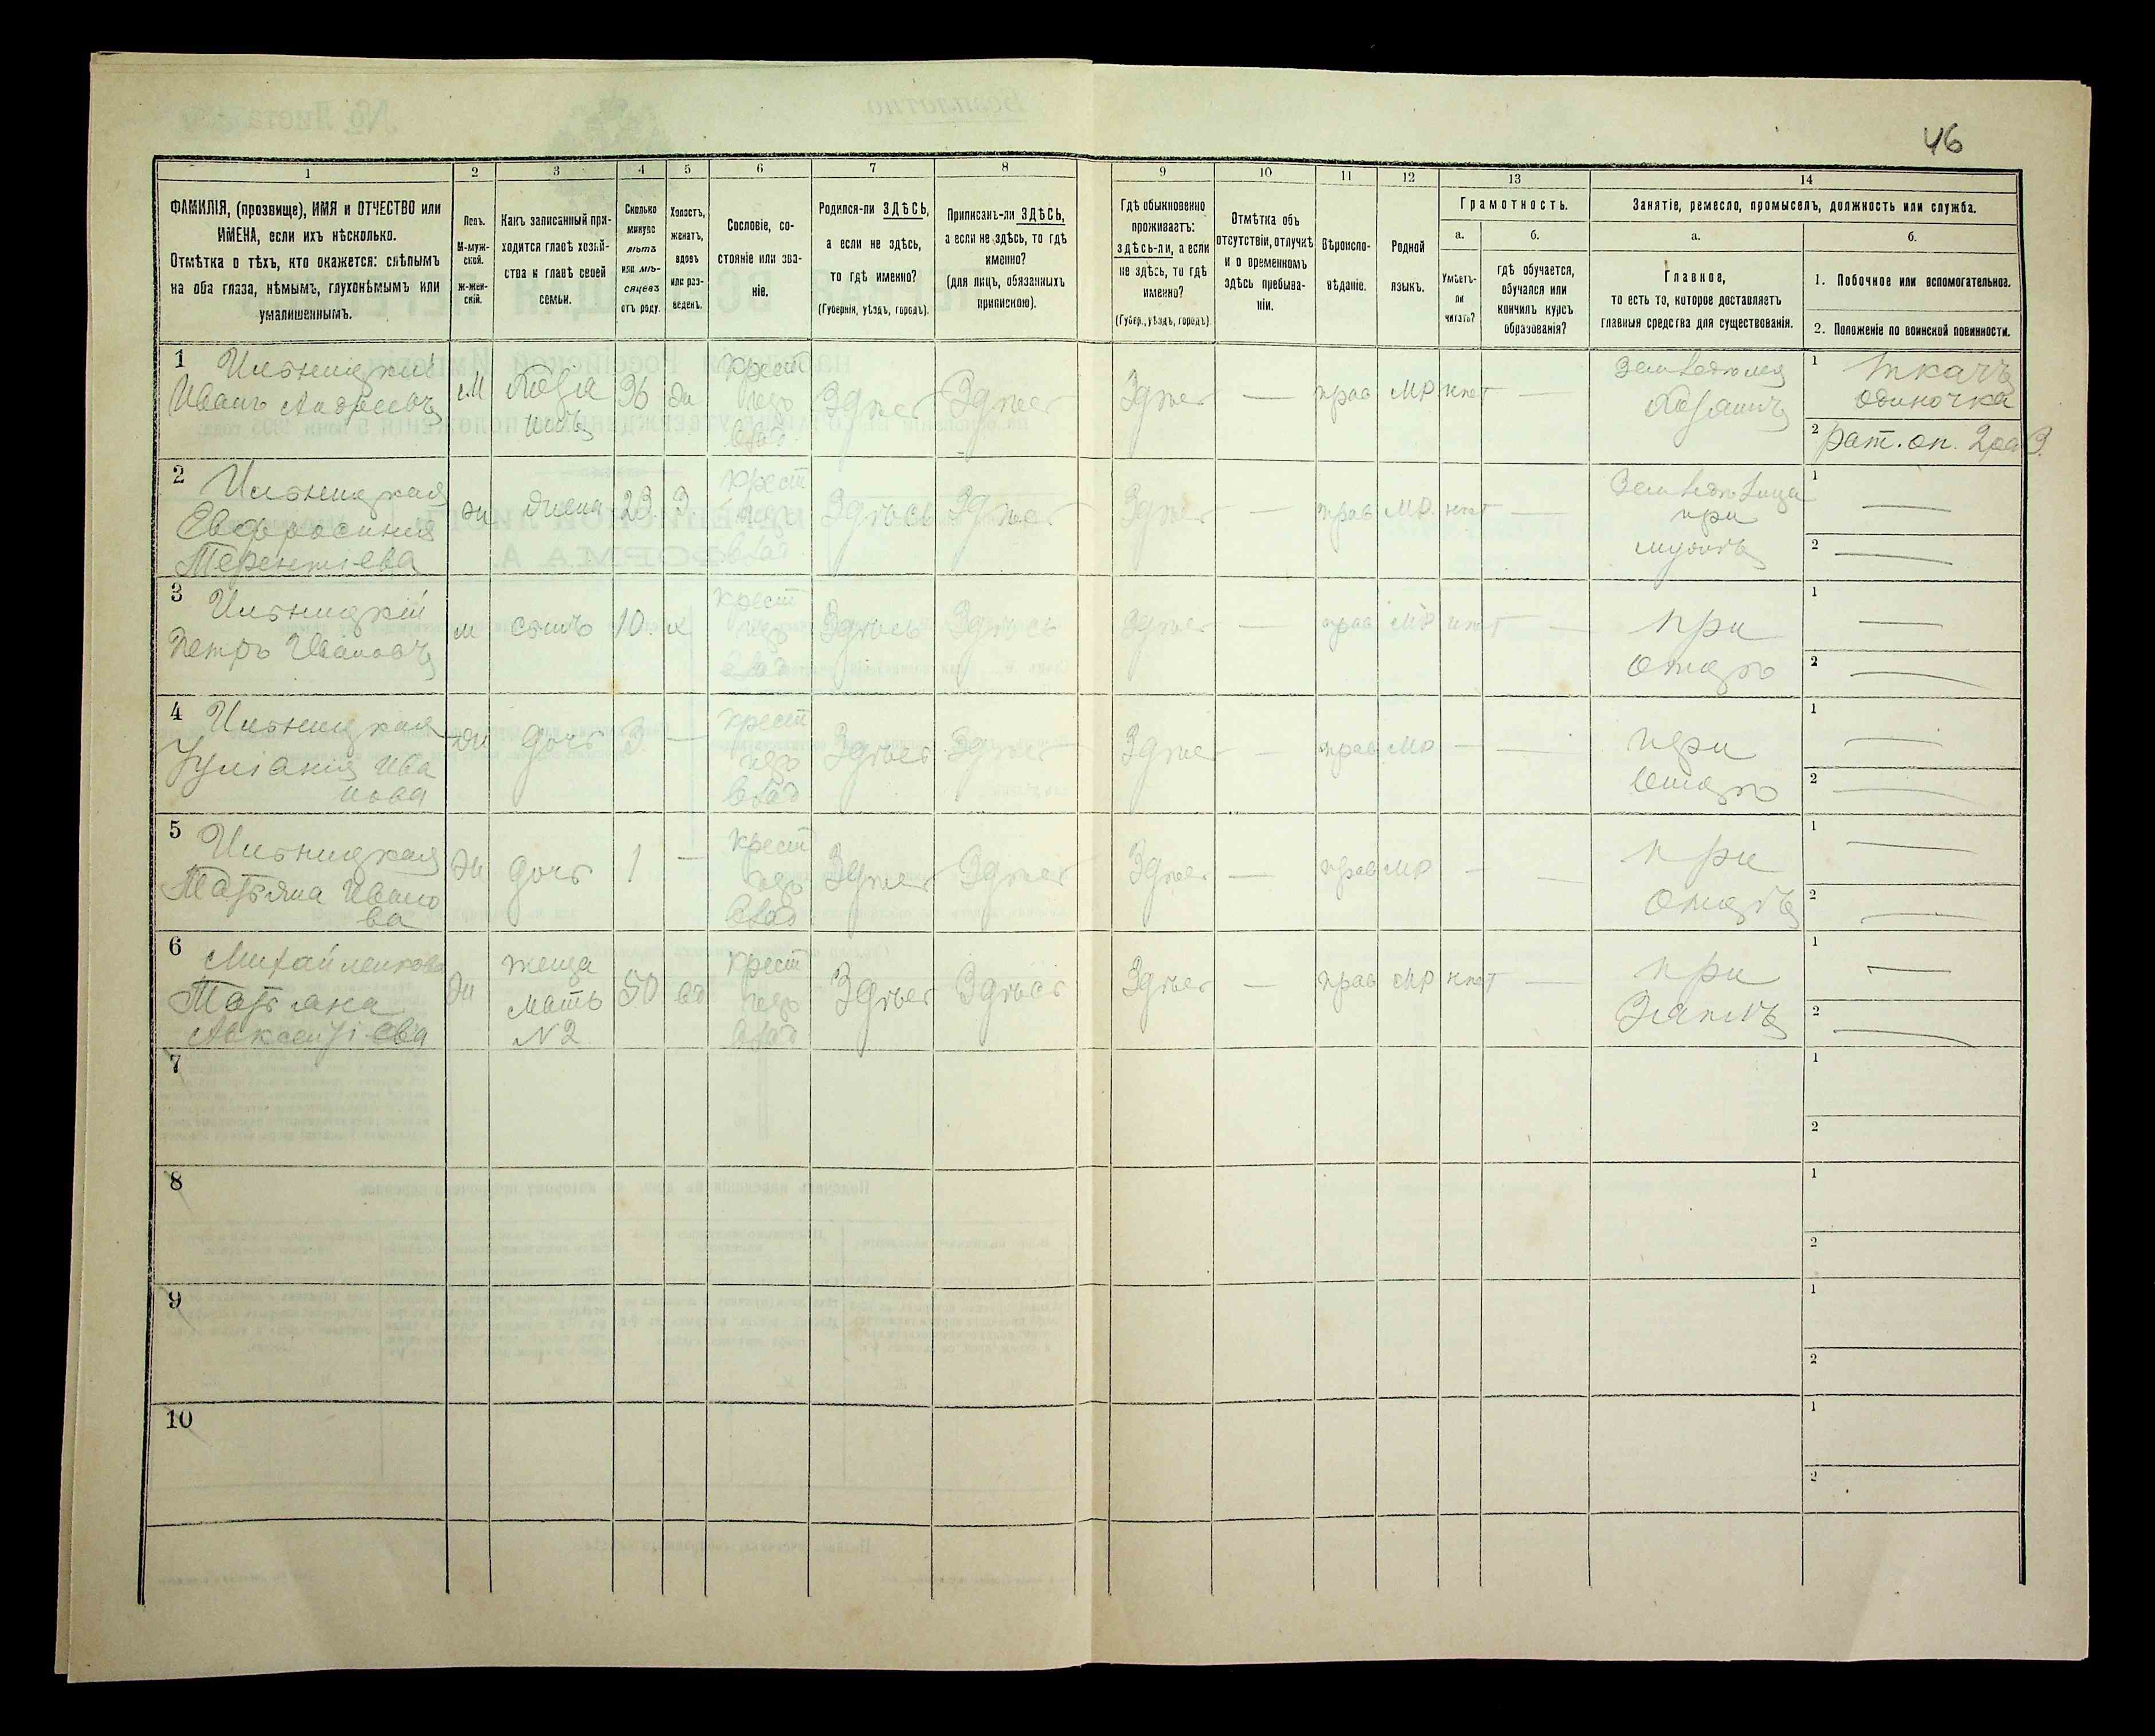 46
1 2 3 4 5 6 7 8 9 10 11 12 13 14
ФАМИЛІЯ, (прозвище), ИМЯ и ОТЧЕСТВО или
ИМЕНА, если ихъ нѣсколько.
Отмѣтка о тѣхъ, кто окажется: слѣпымъ
на оба глаза, нѣмымъ, глухонѣмымъ или
умалишеннымъ.
Полъ.
М-муж-
ской.
Ж-жен-
скій.
Какъ записанный при-
ходится главѣ хозяй-
ства и главѣ своей
семьи.
Сколько
минуло
лѣтъ
или мѣ-
сяцевъ
отъ роду.
Холостъ,
женатъ,
вдовъ
или раз-
веденъ.
Сословіе, со-
стояніе или зва-
ніе.
Родился-ли ЗДѢСЬ,
а если не здѣсь,
то гдѣ именно?
(Губернія, уѣздъ, городъ).
Приписанъ-ли ЗДѢСЬ,
а если не здѣсь, то гдѣ
именно?
(для лицъ, обязанныхъ
припискою).
Гдѣ обыкновенно
проживаетъ:
здѣсь-ли, а если
не здѣсь, то гдѣ
именно?
(Губер., уѣздъ, городъ).
Отмѣтка объ
отсутствіи, отлучкѣ
и о временномъ
здѣсь пребыва-
ніи.
Вѣроиспо-
вѣданіе.
Родной
языкъ.
Грамотность.
а.
Умѣетъ-
ли
читать?
б.
гдѣ обучается,
обучался или
кончилъ курсъ
образованія?
Занятіе, ремесло, промыселъ, должность или служба.
а.
Главное,
то есть то, которое доставляетъ
главныя средства для существованія.
б.
1. Побочное или вспомогательное.
2. Положеніе по воинской повинности.
1 Ильницкій
Иванъ Андреевъ
М
36
крест
Здѣсь Здѣсь Здѣсь — прав МР нѣт —
1 ткачъ
одиночка
2 рат. оп. 2 раз.
2 Ильницкая
Евфросинія
Терентіева
Ж жена 23 З
крест
Здѣсь Здѣсь Здѣсь — прав МР. нѣт —
при
мужѣ
1 —
2 —
3 Ильницкій
Петръ Ивановъ
М сынъ 10 х
крест
Здѣсь Здѣсь Здѣсь — прав МР нѣт —
при
отцѣ
1 —
2 —
4 Ильницкая
Іуліанія Ива
нова
Ж дочь 3 —
крест
Здѣсь Здѣсь Здѣсь — прав МР — —
при
отцѣ
1 —
2 —
5 Ильницкая
Татьяна Ивано
ва
Ж дочь 1 —
крест
Здѣсь Здѣсь Здѣсь — прав МР — —
при
отцѣ
1 —
2 —
6 Михайленкова
Татьяна
Ж
мать
№2
50 вд
крест
Здѣсь Здѣсь Здѣсь — прав МР нѣт —
при
зятѣ
1 —
2 —
7
1
2
8
1
2
9
1
2
10
1
2